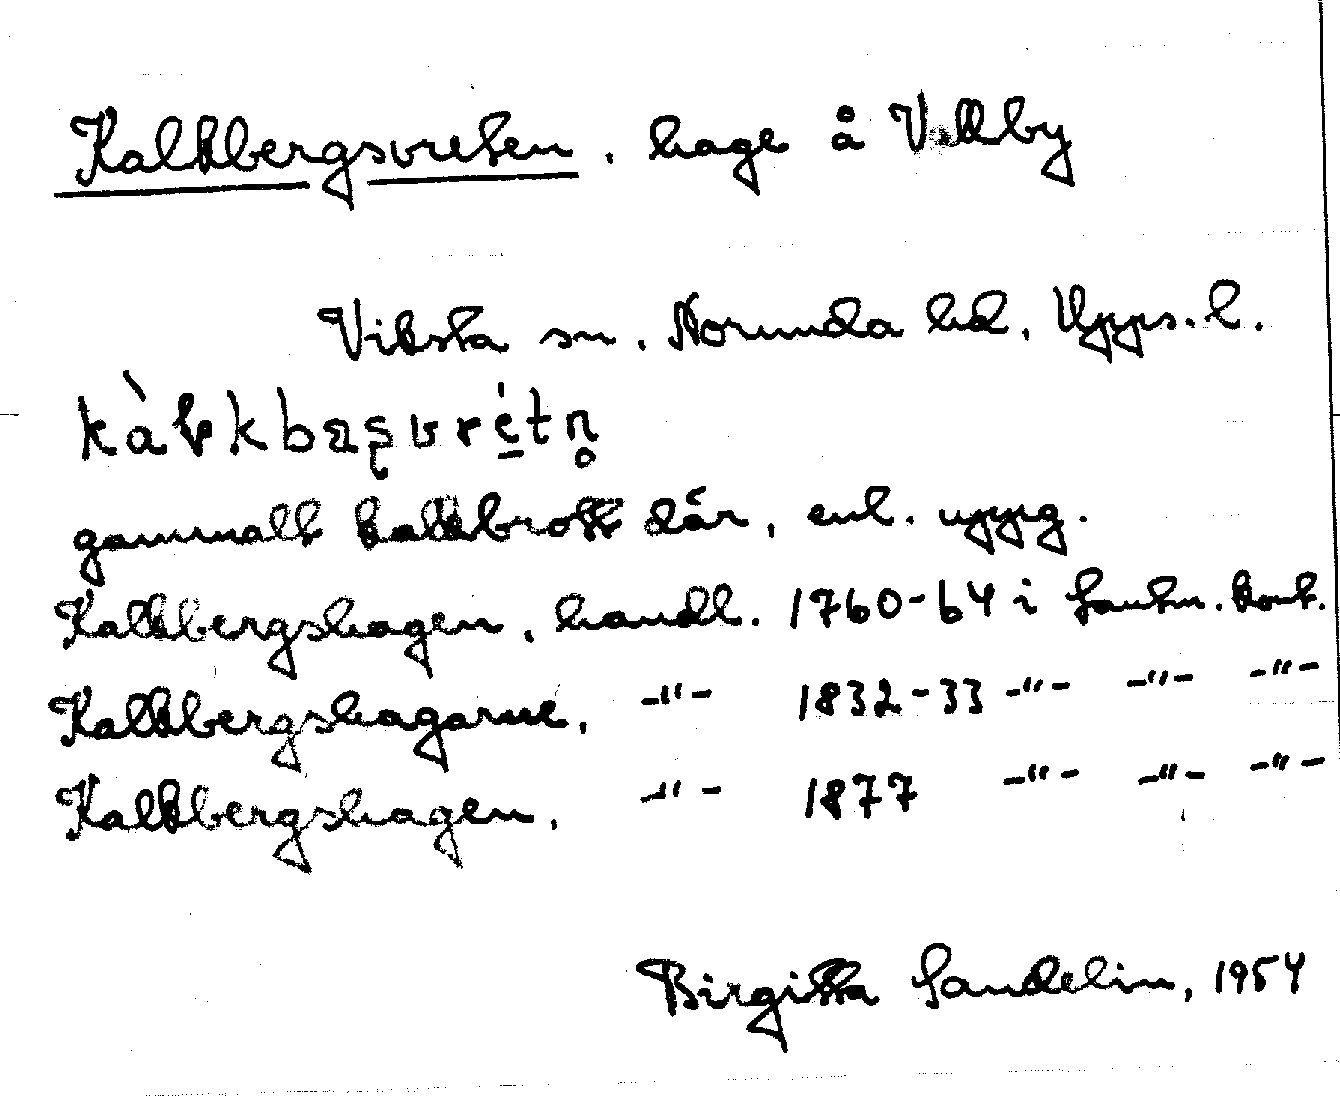 Kalkbergsvreten, hage å Vallby
Viksta sn. Norunda hd, Upps. l.
gammalt kalkbrott där, enl. uppg.
Kalkbergshagen, handl. 1760-64 i Lantm. kont.
Kalkbergshagarne, -"- 1832-33 -"- -"- -"-
Kalkbergshagen, -"- 1877 -"- -"- -"-
Birgitta Sandelin, 1954